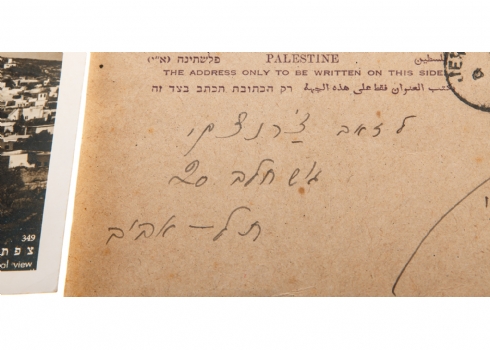 פלשתינה (א״י) PALESTINE فلسطين
THE ADDRESS ONLY TO BE WRITTEN ON THIS SIDE
רק הכתובת תכתב בצד זה كتب العنوان فقط على هذه الجهة
JER
לזאב
גוש חלב 20
תל-אביב
349
צפת
view